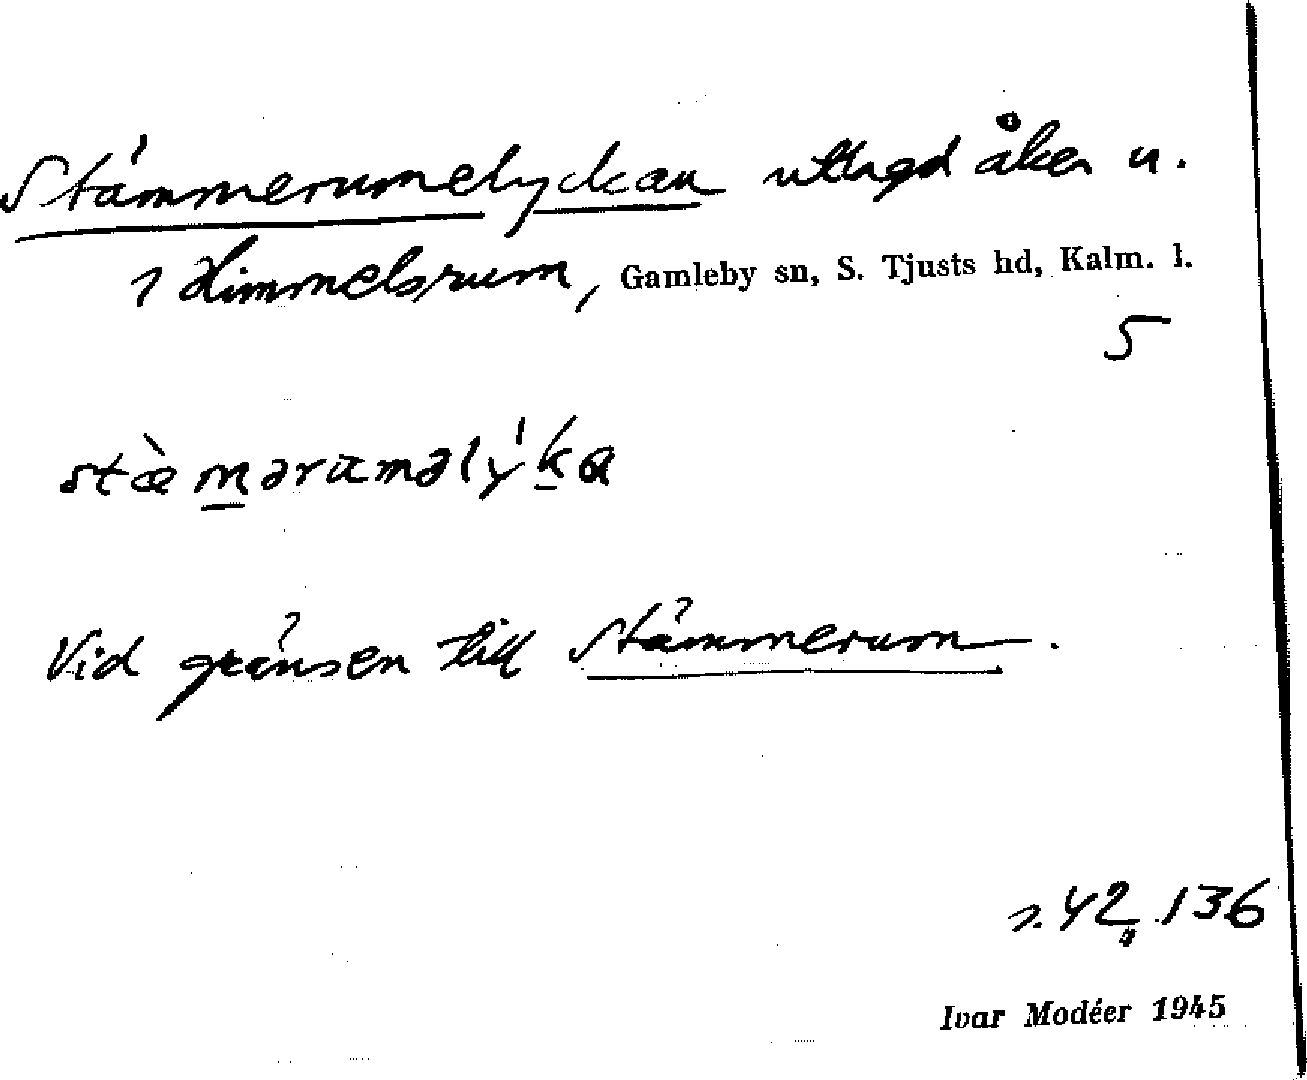 Stämmerumelyckan utlagd åker u.
i Himmelsrum, Gamleby sn, S. Tjusts hd, Kalm. l.
5
stæ̀m̲ərumalý'k̲a
Vid gränsen till Stämmerum.
s. 42, 136
Ivar Modéer 1945